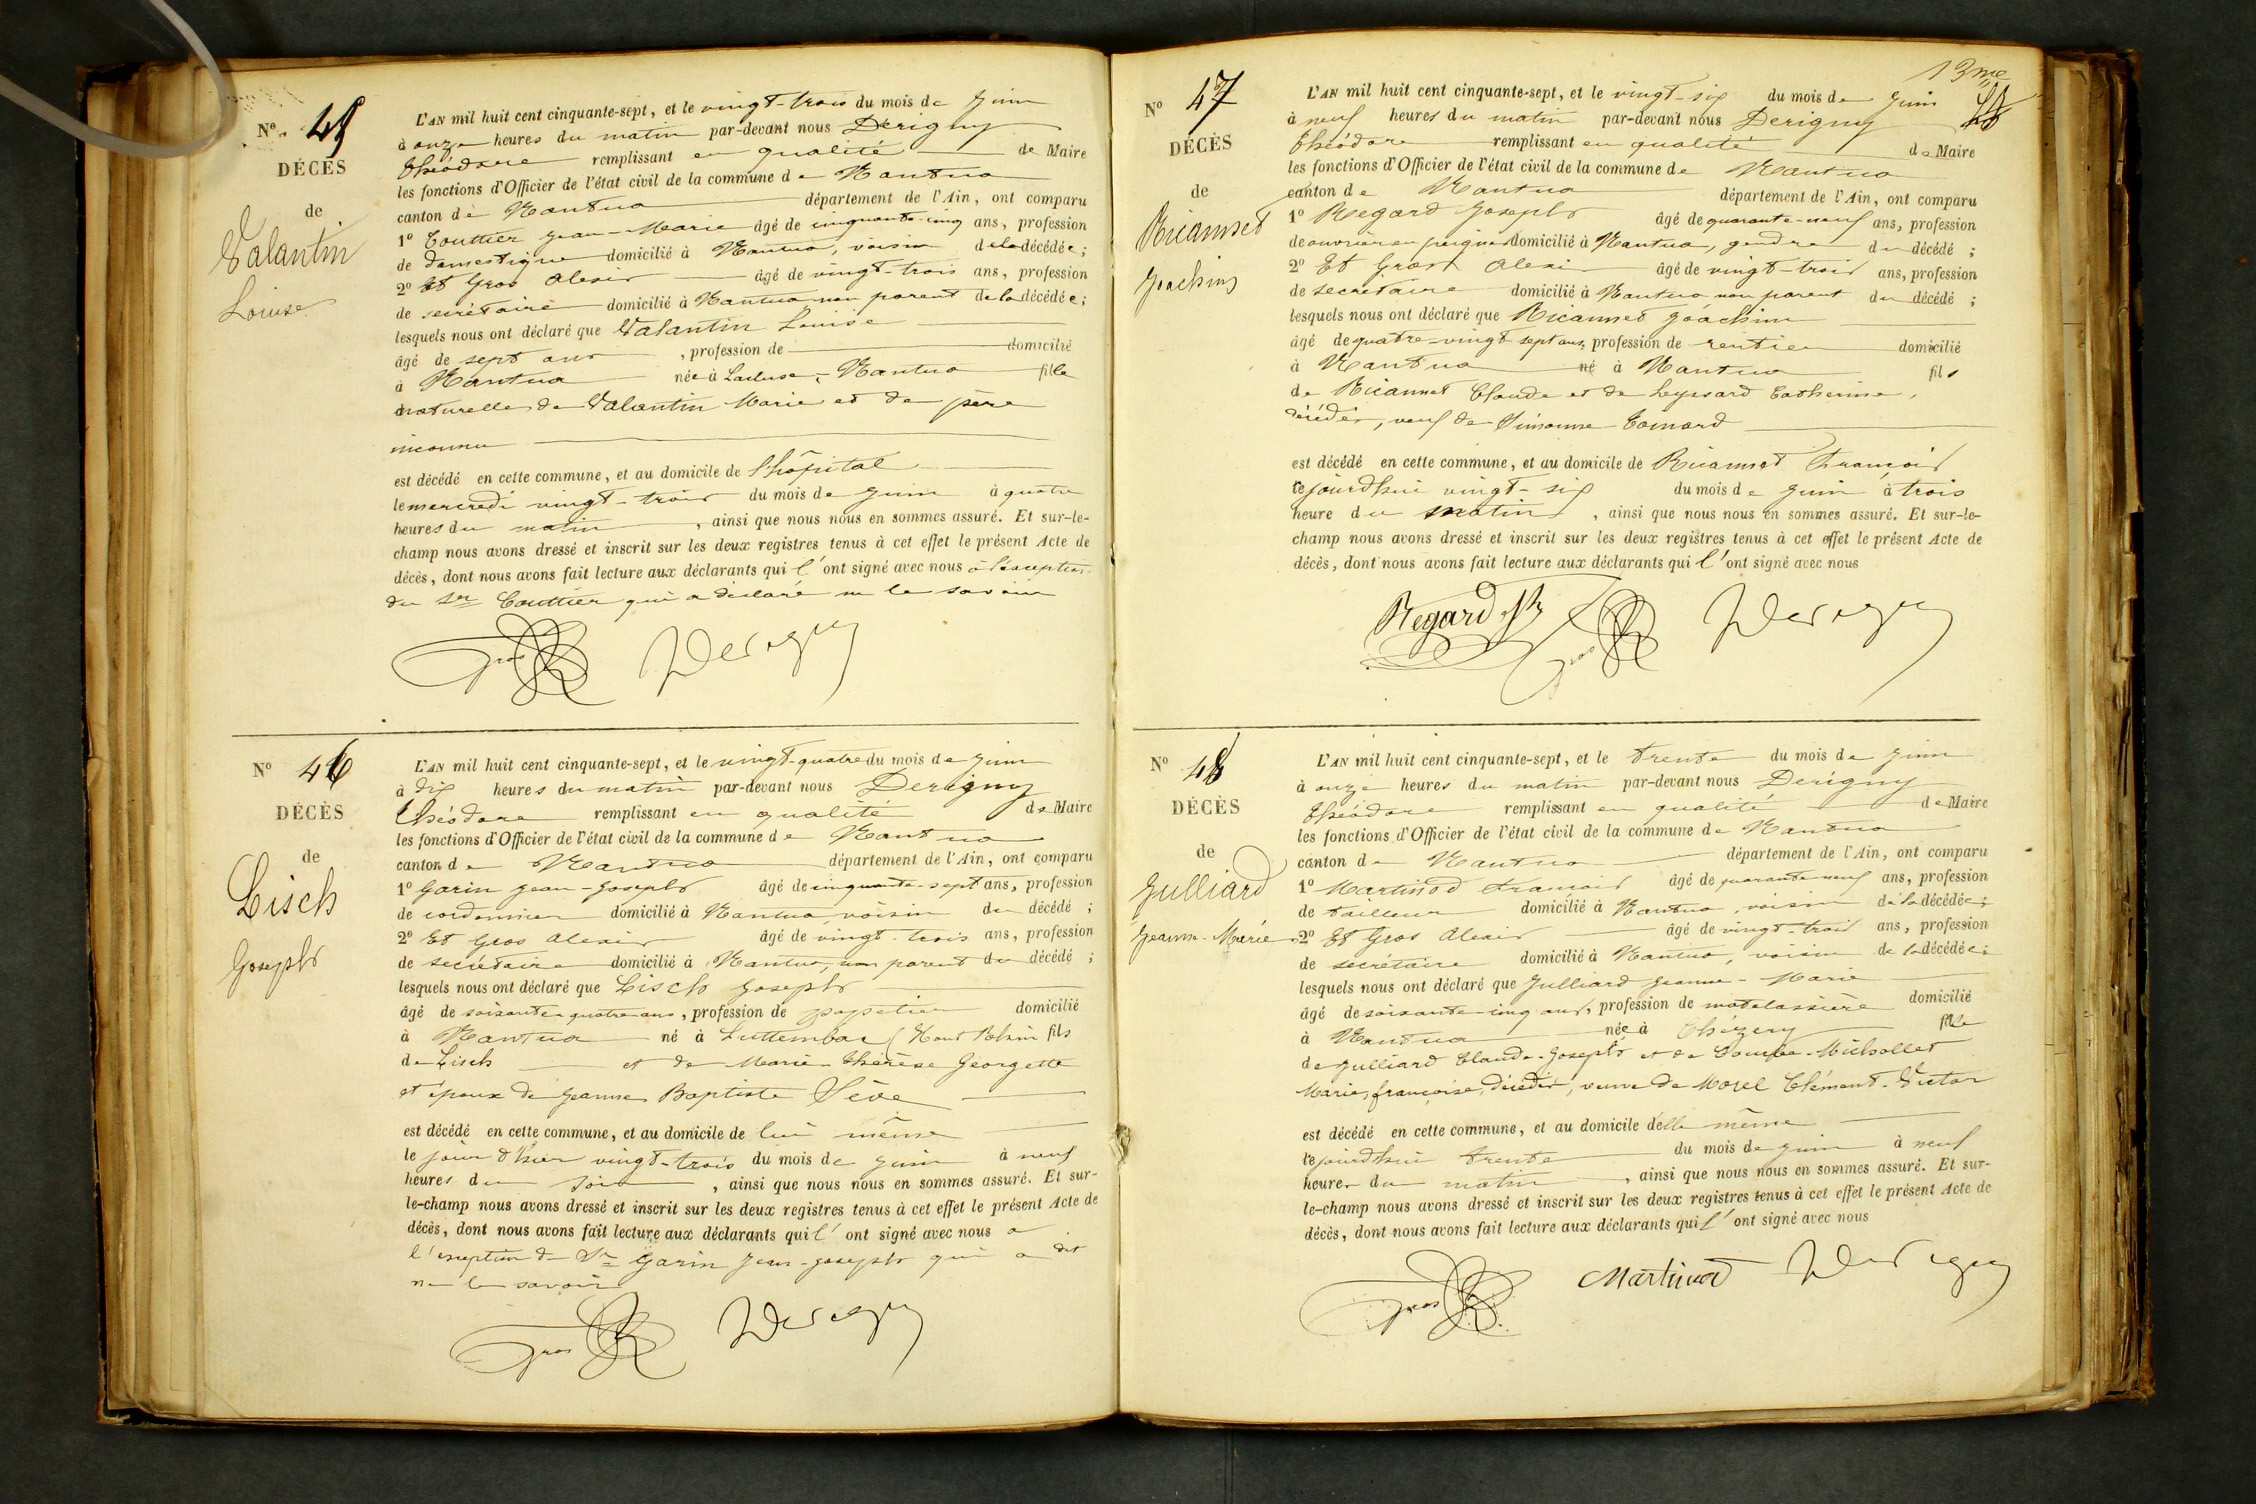 N° 45
DÉCÈS
de
Valantin
Louise
L'AN mil huit cent cinquante-sept, et le vingt-trois du mois de Juin
à onze heures du matin par-devant nous Derigny
Théodore remplissant en qualité de Maire
les fonctions d'Officier de l'état civil de la commune de Nantua
canton de Nantua département de l'Ain, ont comparu
1° Couttier Jean-Marie âgé de cinquante-cinq ans, profession
de domestique domicilié à Nantua, voisin de la décédée;
2° Et Gros Alexis âgé de vingt-trois ans, profession
de secrétaire domicilié à Nantua non parent de la décédée;
lesquels nous ont déclaré que Valantin Louise
âgé de sept ans, profession de domicilié
à Nantua née à Lacluse, Nantua fille
naturelle de Valantin Marie et de père
inconnu
est décédé en cette commune, et au domicile de l'hôpital
le mercredi vingt-trois du mois de Juin à quatre
heures du matin, ainsi que nous nous en sommes assuré. Et sur-le-
champ nous avons dressé et inscrit sur les deux registres tenus à cet effet le présent Acte de
décès, dont nous avons fait lecture aux déclarants qui l'ont signé avec nous à l'exception
du Sr Couttier qui a déclaré ne le savoir
Gros Derigny
N° 46
DÉCÈS
de
Lisch
Joseph
L'AN mil huit cent cinquante-sept, et le vingt-quatre du mois de Juin
à dix heures du matin par-devant nous Derigny
Théodore remplissant en qualité de Maire
les fonctions d'Officier de l'état civil de la commune de Nantua
canton de Nantua département de l'Ain, ont comparu
1° Garin Jean-Joseph âgé de cinquante-sept ans, profession
de cordonnier domicilié à Nantua voisin du décédé;
2° Et Gros Alexis âgé de vingt-trois ans, profession
de secrétaire domicilié à Nantua, non parent du décédé;
lesquels nous ont déclaré que Lisch Joseph
âgé de soixante quatre ans, profession de papetier domicilié
à Nantua né à Luttembac (Haut Rhin fils
de Lisch et de Marie-Thérèse Georgette
et époux de Jeanne Baptiste Sève
est décédé en cette commune, et au domicile de lui même
le jour d'hier vingt-trois du mois de Juin à neuf
heures du soir, ainsi que nous nous en sommes assuré. Et sur-
le-champ nous avons dressé et inscrit sur les deux registres tenus à cet effet le présent Acte de
décès, dont nous avons fait lecture aux déclarants qui l'ont signé avec nous a
l'exception de Sr Garin Jean-Joseph qui a dit
ne le savoir
Gros Derigny
13me
N° 47
DÉCÈS
de
Ricannet
Joachim
L'AN mil huit cent cinquante-sept, et le vingt-six du mois de Juin
à neuf heures du matin par-devant nous Derigny
Théodore remplissant en qualité de Maire
les fonctions d'Officier de l'état civil de la commune de Nantua
canton de Nantua département de l'Ain, ont comparu
1° Regard Joseph âgé de quarante-neuf ans, profession
de ouvrier en peignes domicilié à Nantua, gendre du décédé;
2° Et Gros Alexis âgé de vingt-trois ans, profession
de secrétaire domicilié à Nantua non parent du décédé;
lesquels nous ont déclaré que Ricannet Joachim
âgé de quatre-vingt sept ans, profession de rentier domicilié
à Nantua né à Nantua fils
de Ricannet Claude et de Leyssard Catherine,
décédés, veuf de Simonne
est décédé en cette commune, et au domicile de Ricannet François
le jourd'hui vingt-six du mois de Juin à trois
heure du matin, ainsi que nous nous en sommes assuré. Et sur-le-
champ nous avons dressé et inscrit sur les deux registres tenus à cet effet le présent Acte de
décès, dont nous avons fait lecture aux déclarants qui l'ont signé avec nous
Regard Jh Gros Derigny
N° 48
DÉCÈS
de
Julliard
Jeanne-Marie
L'AN mil huit cent cinquante-sept, et le trente du mois de Juin
à onze heures du matin par-devant nous Derigny
Théodore remplissant en qualité de Maire
les fonctions d'Officier de l'état civil de la commune de Nantua
canton de Nantua département de l'Ain, ont comparu
1° Martinod François âgé de quarante neuf ans, profession
de tailleur domicilié à Nantua, voisin de la décédée;
2° Et Gros Alexis âgé de vingt-trois ans, profession
de secrétaire domicilié à Nantua, voisin de la décédée;
lesquels nous ont déclaré que Julliard Jeanne-Marie
âgé de soixante-cinq ans, profession de matelassière domicilié
à Nantua née à Chézery fille
de Julliard Claude-Joseph et de Coupe-Michollet
Marie, françoise, décédés, veuve de Morel Clément-Victor
est décédé en cette commune, et au domicile d'elle même
le jourd'hui trente du mois de Juin à neuf
heures du matin, ainsi que nous nous en sommes assuré. Et sur-
le-champ nous avons dressé et inscrit sur les deux registres tenus à cet effet le présent Acte de
décès, dont nous avons fait lecture aux déclarants qui l'ont signé avec nous
Gros Martinod Derigny